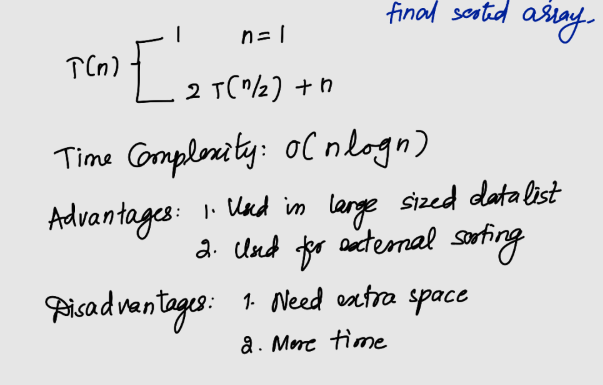 final sorted array.
T(n) 1 n=1
2 T(n/2) + n
Time Complexity: O(nlogn)
Advantages: 1. Used in large sized data list
2. Used for external sorting
Disadvantages: 1. Need extra space
2. More time